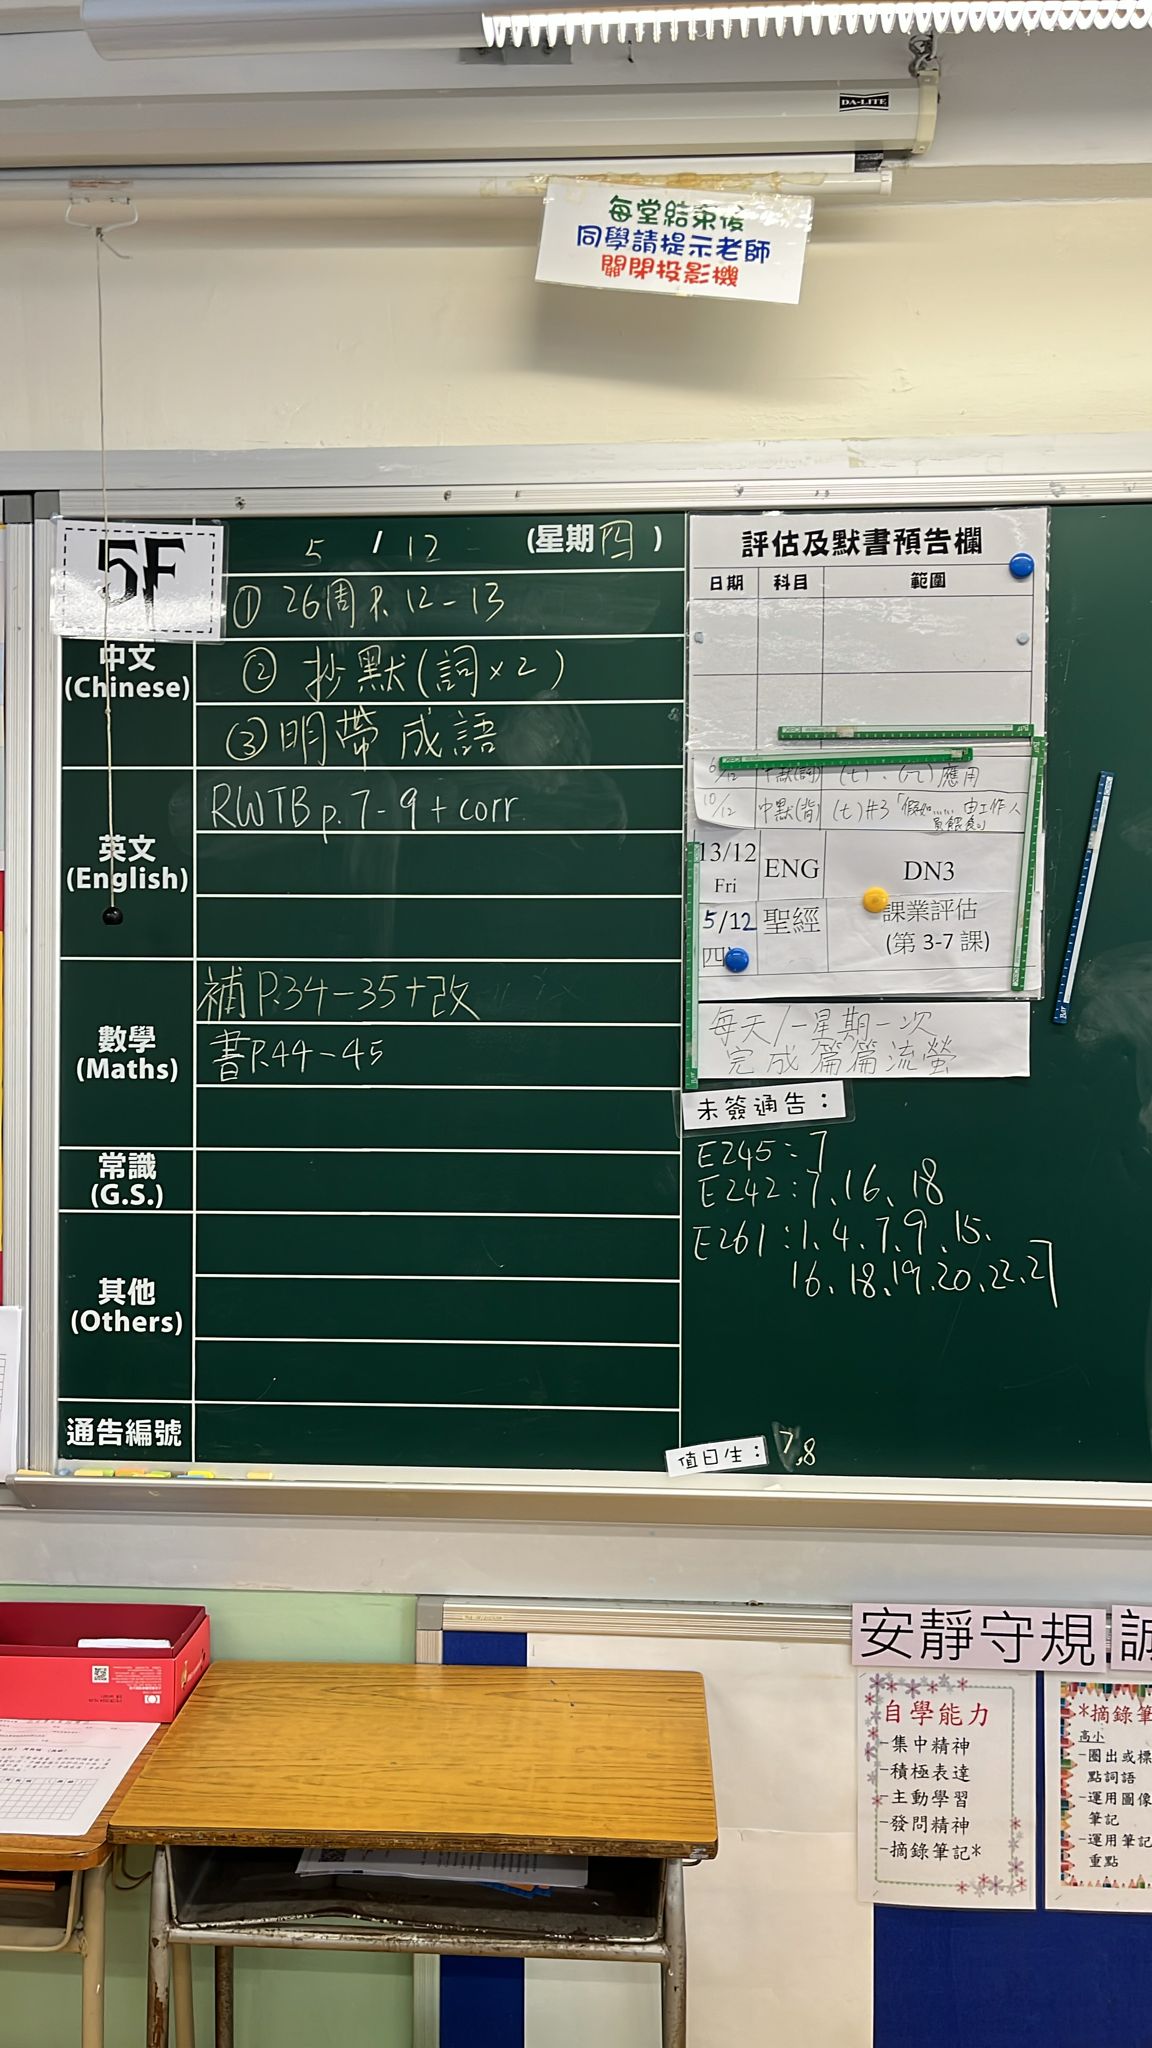 DA-LITE
每堂結束後
同學請提示老師
關閉投影機
5F
5 / 12 (星期四)
中文
(Chinese)
① 26周 P. 12-13
② 抄默(詞×2)
③明帶成語
英文
(English)
RWTB p. 7-9 + corr.
數學
(Maths)
補 P.34-35+改
書P.44-45
常識
(G.S.)
其他
(Others)
通告編號
評估及默書預告欄
日期 科目 範圍
6/12 中默(詞) (七)、(八) 應用
10/12 中默(背) (七)#3「假如……由工作人
員餵食」
13/12 ENG DN3
Fri
5/12 聖經 課業評估
四 (第 3-7 課)
每天/一星期一次
完成篇篇流螢
未簽通告：
E245：7
E242：7、16、18
E261：1、4、7、9、15、
16、18、19、20、22、27
值日生： 7,8
安靜守規
自學能力
-集中精神
-積極表達
-主動學習
-發問精神
-摘錄筆記*
*摘錄筆
高小
-圈出或標
點詞語
-運用圖像
筆記
-運用筆記
重點